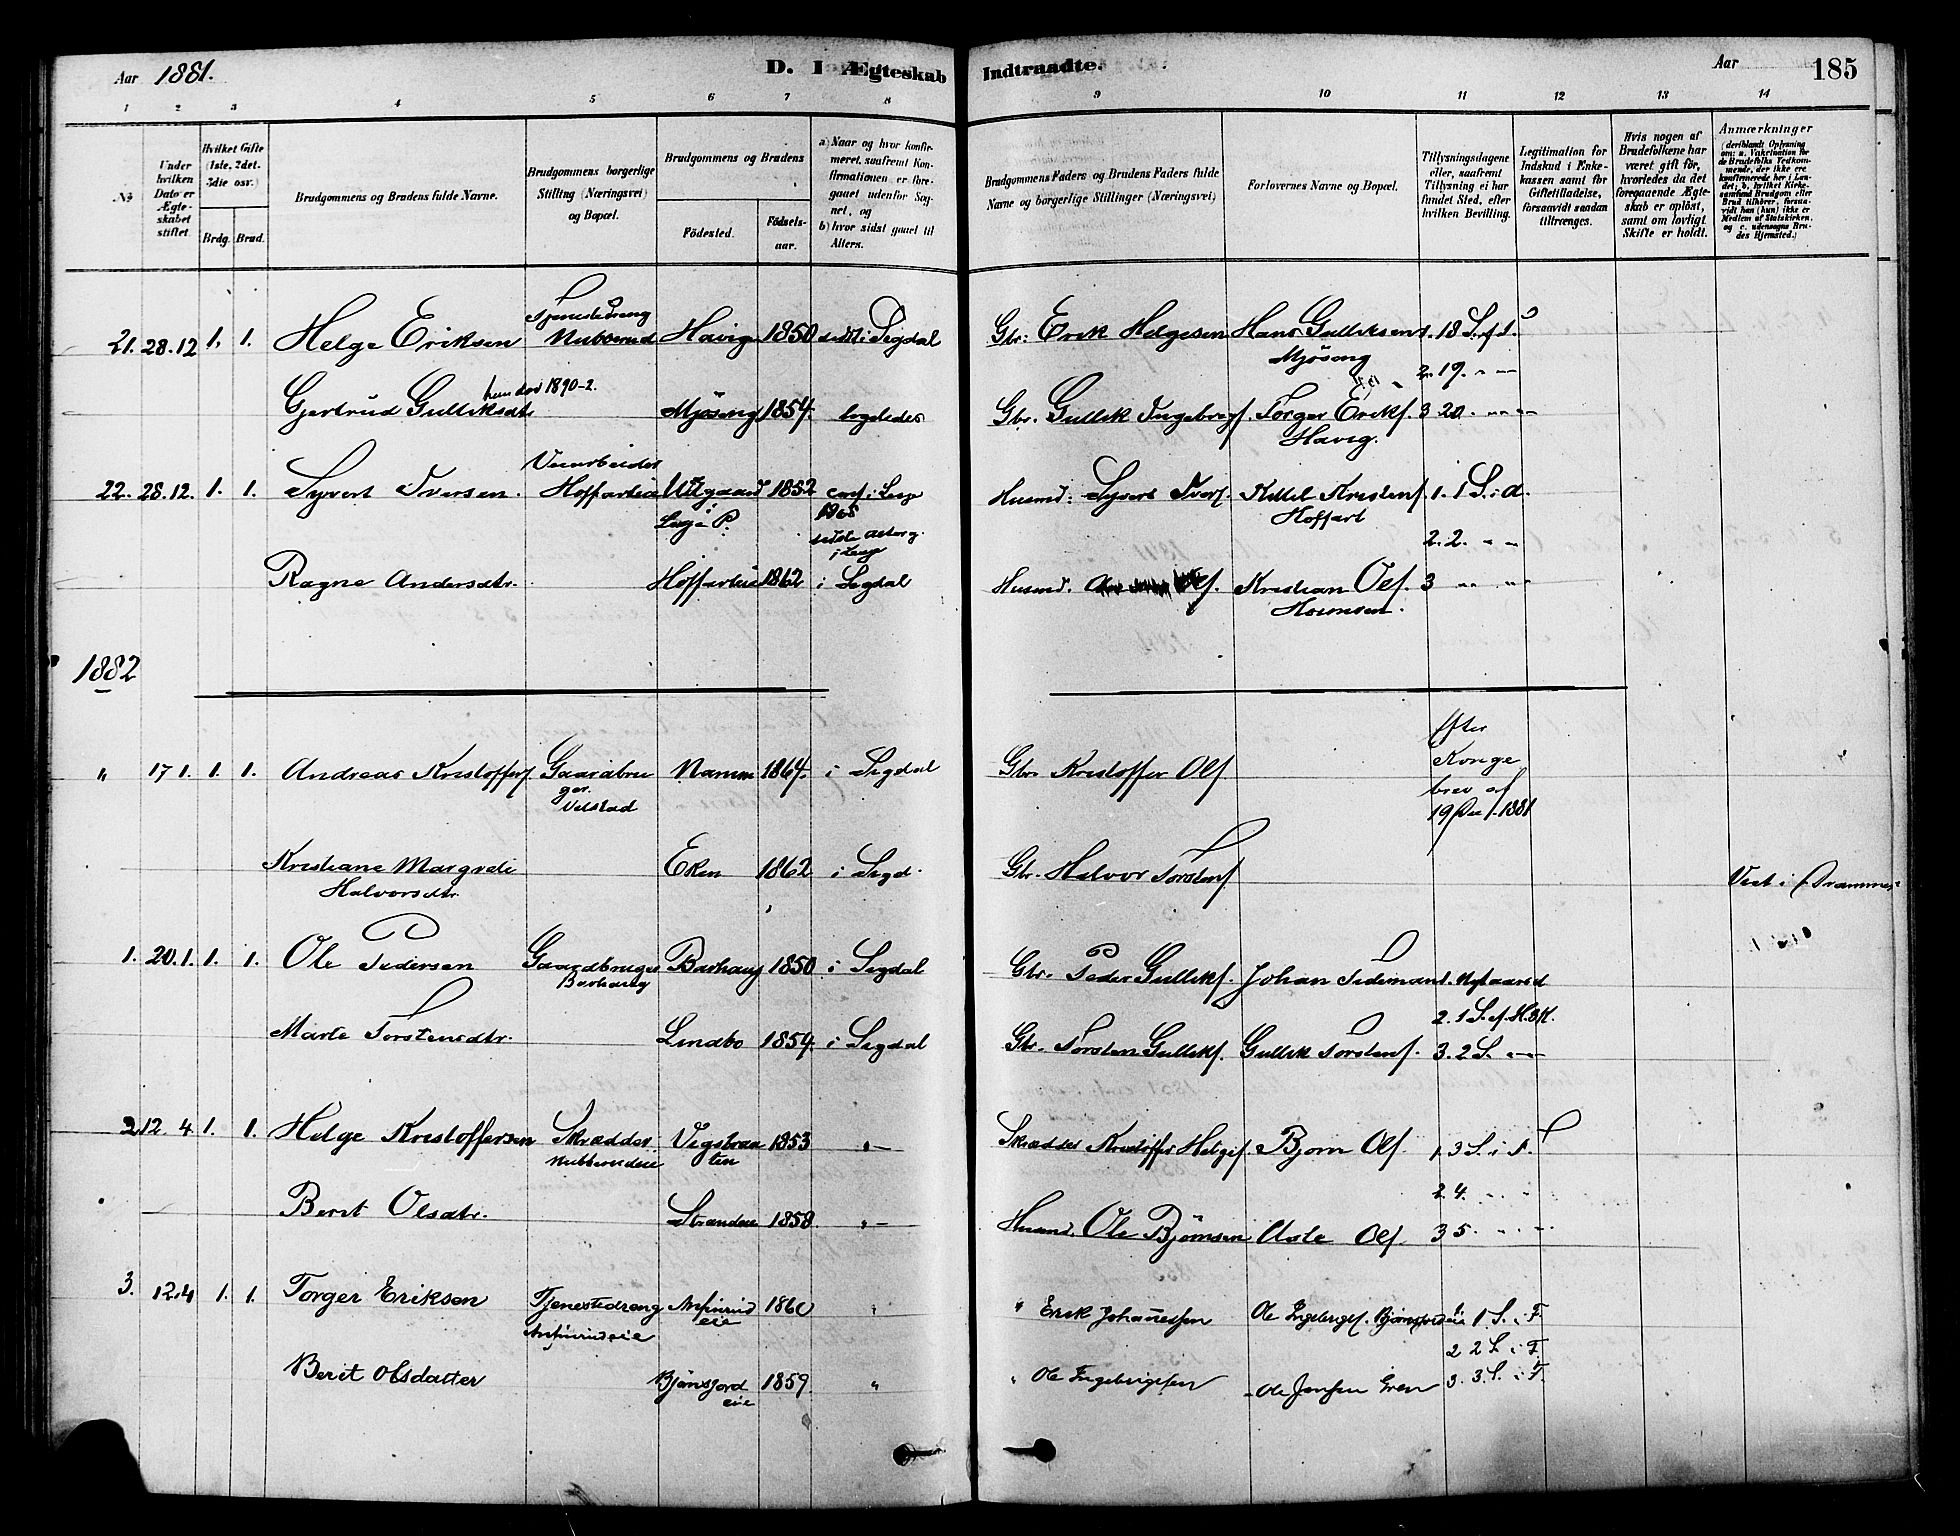 Aar 1881.
D. I Ægteskab Indtraadte.
Aar 185
1 2 3 4 5 6 7 8 9 10 11 12 13 14
No
Under hvilken Dato er Ægteskabet stiftet.
Hvilket Gifte (1ste, 2det, 3die osv.)
Brdg. Brud.
Brudgommens og Brudens fulde Navne.
Brudgommens borgerlige Stilling (Næringsvei) og Bopæl.
Brudgommens og Brudens
Födested. Födselsaar.
a) Naar og hvor konfirmeret, saafremt Konfirmationen er foregaaet udenfor Sognet, og
b) hvor sidst gaaet til Alters.
Brudgommens Faders og Brudens Faders fulde Navne og borgerlige Stillinger (Næringsvei)
Forlovernes Navne og Bopæl.
Tillysningsdagene eller, saafremt Tillysning ei har fundet Sted, efter hvilken Bevilling.
Legitimation for Indskud i Enkekassen samt for Giftetilladelse, forsaavidt saadan tiltrænges.
Hvis nogen af Brudefolkene har været gift för, hvorledes da det foregaaende Ægteskab er oplöst, samt om lovligt Skifte er holdt.
Anmærkninger
(deriblandt Oplysning om: a. Vakcination for de Brudefolks Vedkommende, der ikke ere konfirmerede her i Landet; b. hvilket Kirkesamfund Brudgom eller Brud tilhörer, forsaavidt han (hun) ikke er Medlem af Statskirken, og c. udensogns Brudes Hjemsted.)
21. 28.12 1. 1. Helge Eriksen Tjenestedreng Nubberud Havig 1850 sidst i Sigdal Gbr: Erik Helgesen Hans Gulliksen Mjösong 1. 18 S. e. T.
2. 19. " "
Gjertrud Gulliksdtr. hun död 1890-2. Mjösong 1854. ligeledes Gbr. Gullik Ingebregs. Torger Eriks. Havig. 3 20. " "
22. 28.12. 1. 1. Syvert Iversen. Veiarbeider Hoffarteie Ulgaard i Lesje P. 1852 conf. i Lesje 1868 sidste Altorg. i Lesje Husmd: Syvert Ivers. Kittil Kristens. Hoffart 1. 1 S. i A.
2. 2. " "
Ragne Andersdtr. Hoffarteie 1862 i Sigdal Husmd. Kristian Ols. 3 " "
1882
" 17 1. 1. 1. Andreas Kristoffers. Gaardbruger. Velstad Namm 1864. i Sigdal Gbr Kristoffer Ols. Efter Kongebrev af 19 Dec. 1881
Kristiane Margrete Halvorsdtr. Eken 1862 i Sigd. Gbr. Halvor Torstens. Viet i Drammen
1. 20.1. 1. 1. Ole Pedersen Gaardbruger Barhaug Barhaug 1850 i Sigdal Gbr. Peder Gulliks. Johan Tideman 1. Nytaarsd
2. 1 S. e. H. 3 K.
Marte Torstensdtr. Lindbo 1854. i Sigdal Gbr. Torsten Gulliks. Gullik Torstens. 3. 2 S. " "
2 12. 4 1. 1. Helge Kristoffersen Skrædder Nubberudeie Vegsbraaten 1853 " Skrædder Kristoffer Helges. Bjørn Ols. 1. 3 S. i F.
2 4. " "
Berit Olsdtr. Strandeie 1858 " Husmd. Ole Bjørnsen Asle Ols. 3 5. " "
3. 12.4 1. 1. Torger Eriksen Tjenestedreng Anfinrudeie Anfinrudeie 1860 " " Erik Johannessen Ole Engebrigts. Bjørnsjordeie 1 1. S. i F.
2 2 S. i F.
Berit Olsdatter Bjönsjordeie 1859. " " Ole Engebrigtsen Ole Jensen Gren 3. 3. S. i F.